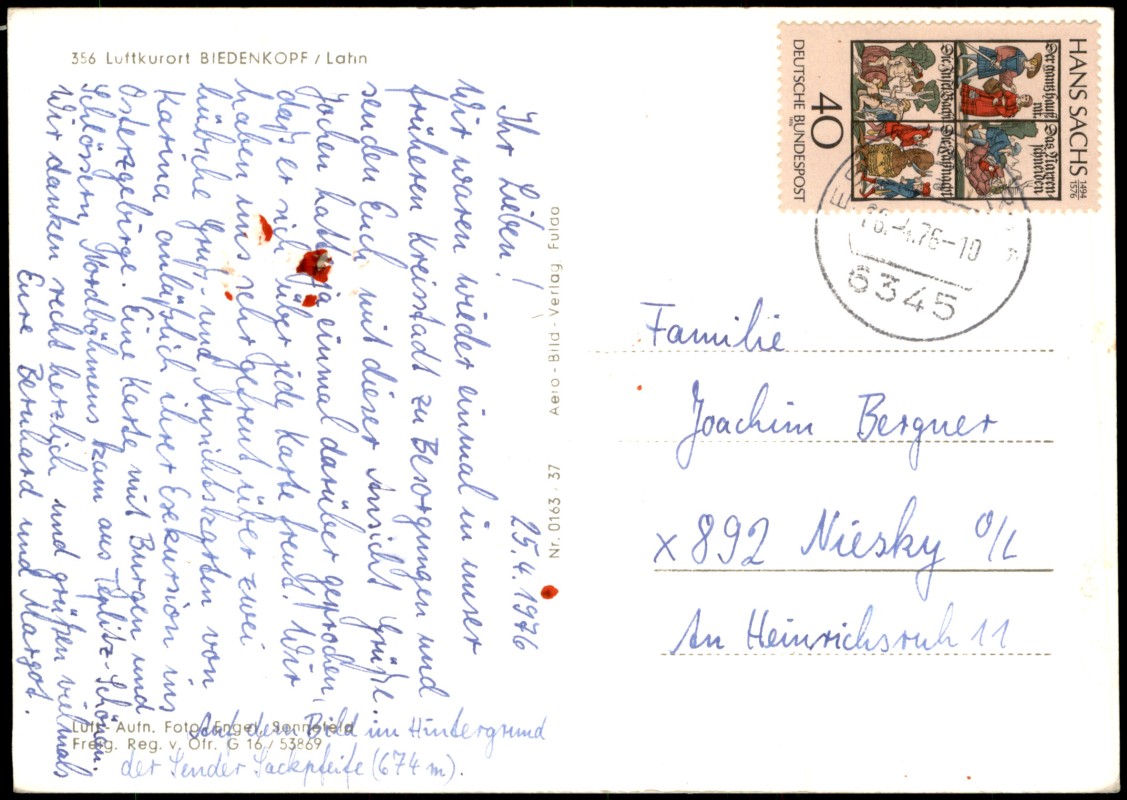 356 Luftkurort BIEDENKOPF / Lahn
25.4.1976
Ihr Lieben!
Wir waren wieder einmal in unser
früheren Kreisstadt zu Besorgungen und
senden Euch mit dieser Ansicht Grüße.
Jochen hatte ja einmal darüber gesprochen,
daß er sich über jede Karte freut. Wir
haben uns sehr gefreut über zwei
hübsche Gruß- und Ansichtskarten von
Karina anläßlich ihrer Exkursion ins
Osterzgebirge. Eine Karte mit Burgen und
Schlössern Nordböhmens kam aus Teplitz-Schönau.
Wir danken recht herzlich und grüßen vielmals
Eure Bernhard und Margot.
Auf dem Bild im Hintergrund
der Sender Sackpfeife (674 m).
Luft. Aufn. Foto Engel, Sonnefeld
Freig. Reg. v. Ofr. G 16 / 53869
Nr. 0163 · 37
Aero - Bild - Verlag Fulda
HANS SACHS 1494 1576
Der gantz hauß
Das Narren
schneyden
DEUTSCHE BUNDESPOST
40
.4.76-10
6345
Familie
Joachim Bergner
x 892 Niesky O/L
An Heinrichsruh 11